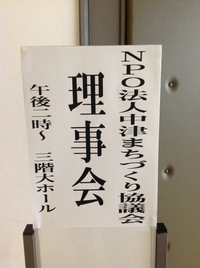 NPO法人中津まちづくり協議会
理事会
午後二時～ 三階大ホール